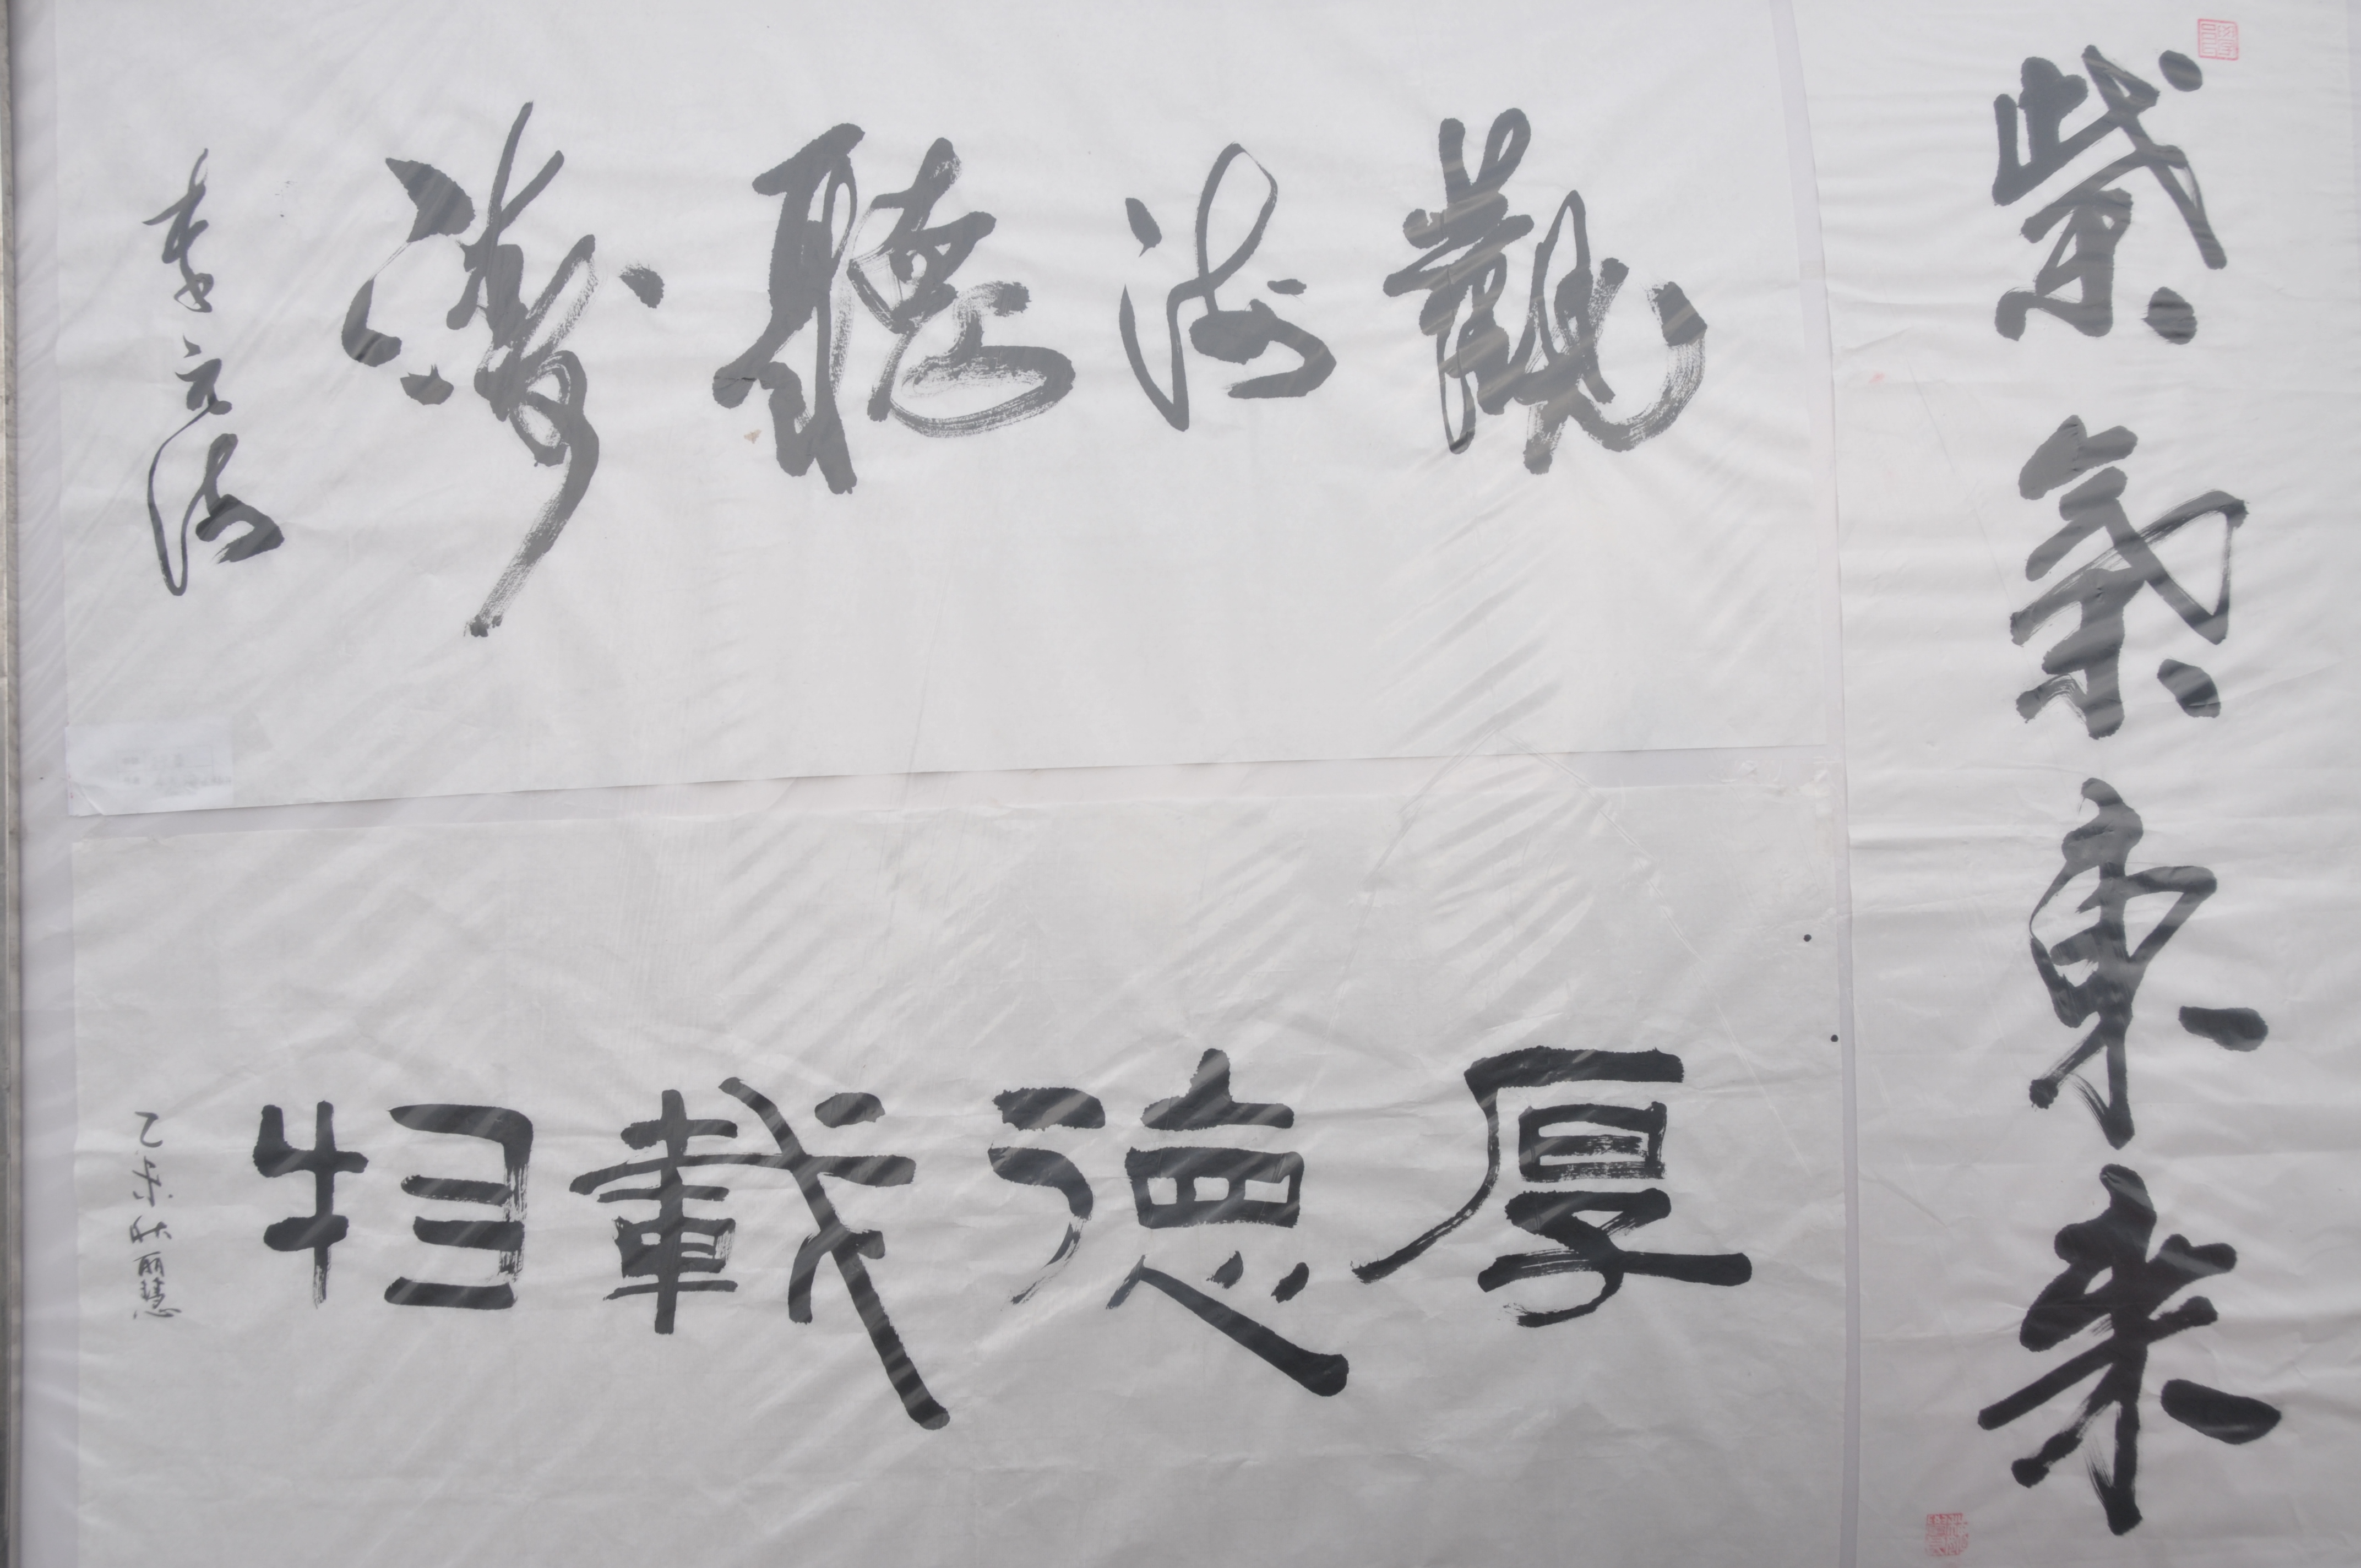 紫氣東来
觀海聽濤
李立海
厚德載物
乙未 丽慧